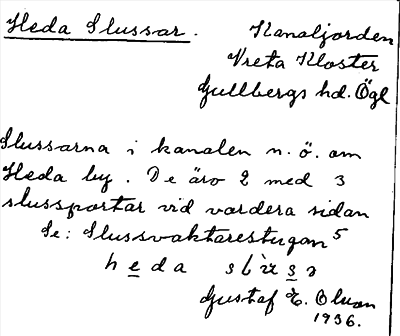 Heda Slussar. Kanaljorden
Vreta Kloster
Gullbergs hd. Ögl
Slussarna i kanalen n. ö. om
Heda by. De äro 2 med 3
slussportar vid vardera sidan
Se: Slussvaktarestugan 5
heda
Gustaf E. Olson
1936.